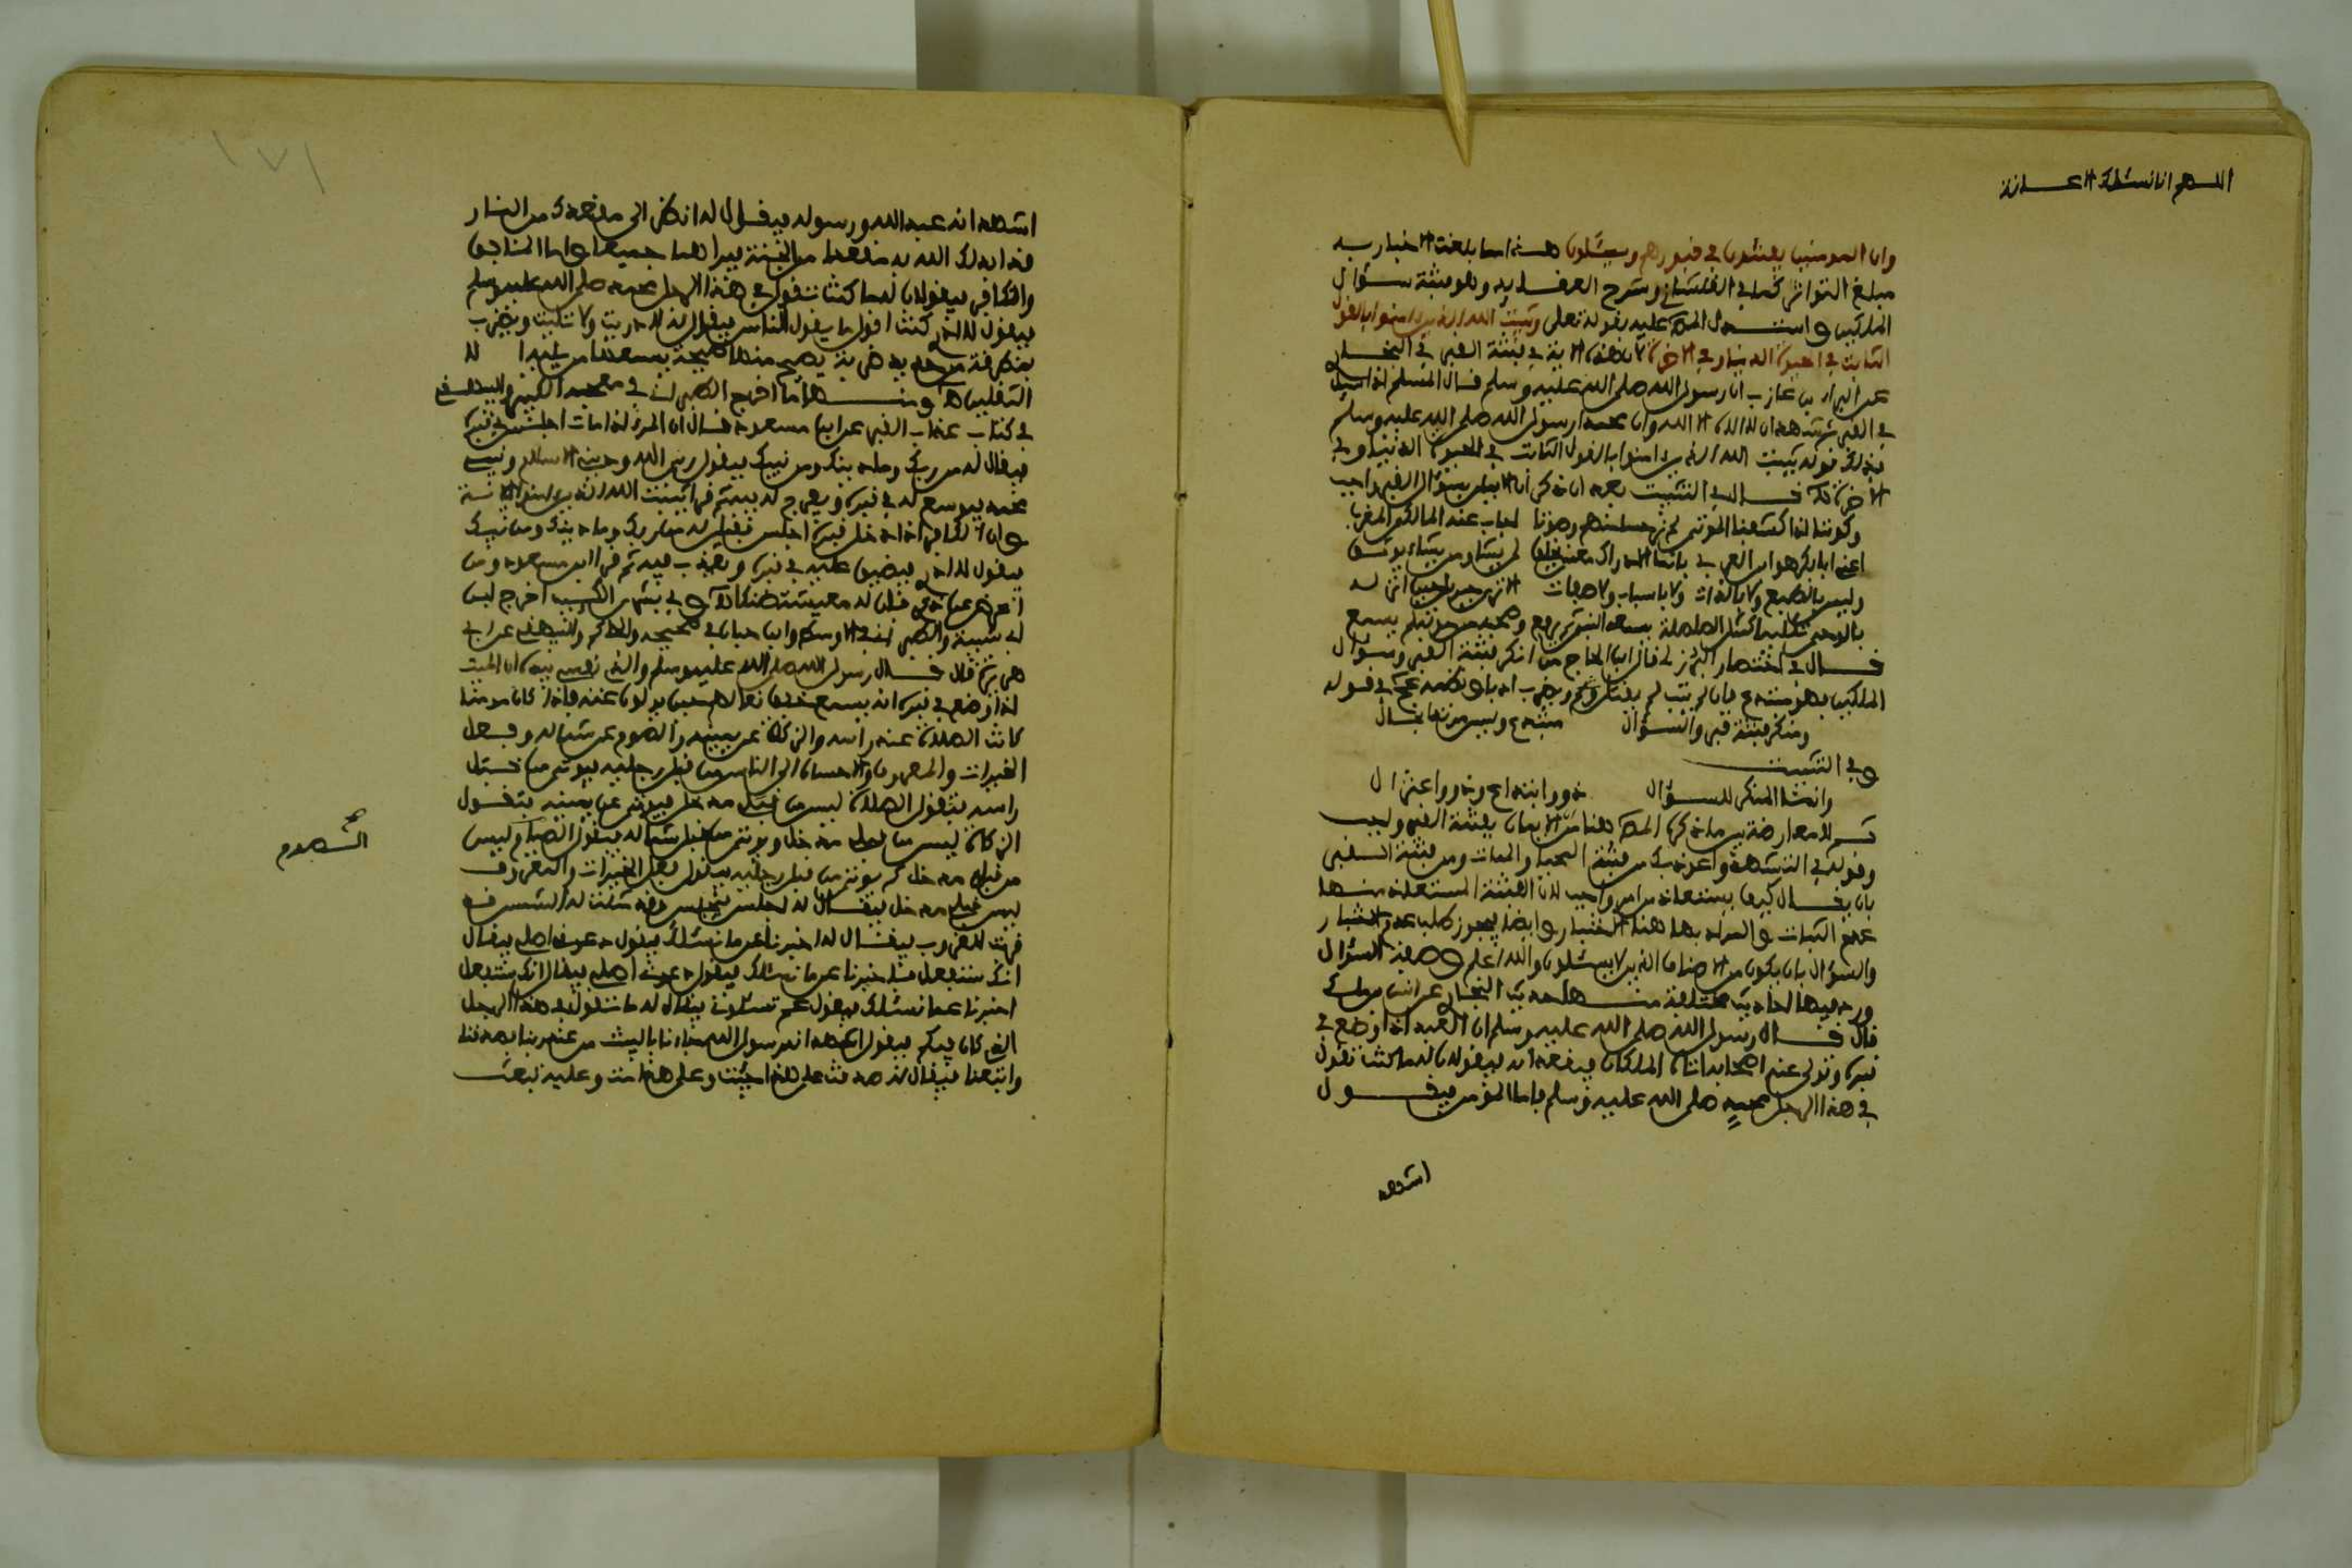 اللهم انا نسئلك الاعانة
وان المومنين يفتنون في قبورهم ويسئلون هذا مما بلغت الاخبار به
مبلغ التواتر كما في القلشاني وشرح العقايد وهو فتنة سؤال
الملكين واستدل المص عليه بقوله تعلى ويثبت الله الذين امنوا بالقول
الثابت في الحيوة الدنيا وفي الاخرة لان هذه الاية في فتنة القبر في البخاري
عن البراء بن عازب ان رسول الله صلى الله عليه وسلم قال المسلم اذا سيل
في القبر شهد ان لا اله الا الله وان محمدا رسول الله صلى الله عليه وسلم
فذلك قوله يثبت الله الذين امنوا بالقول الثابت في الحيوة الدنيا وفي
الاخرة قال في التثبيت بعد ان ذكر ان الايمان بسؤال القبر واجب
وكوننا اذا كشفنا الموتى لم نرهم
اعني ابا بكر هو ابن العربي
وليس بالطبع ولا بالذات ولا باسباب ولا صفات
بالوحي
قال في اختصار البرزلي قال ابن الحاج من انكر فتنة القبر وسؤال
الملكين فهو مبتدع فان لم يتب لم يقتل ويضرب ادبا ونظمه في قوله
ومنكر فتنة قبر والسؤال مبتدع وليس من ذا بحال
وفي التثبيت
وانما المنكر للسؤال ذوو ابتداع وذوو اعتزال
ثم لا معارضة بين ما ذكره المص هنا من الايمان بفتنة القبر واجب
وقوله في التشهد واعوذ بك من فتنة المحيا والممات ومن فتنة القبر
بان يقال كيف يستعاذ من امر واجب لان الفتنة المستعاذ منها
عدم الثبات والمراد بها هنا الاختبار وايضا يجوز طلب عدم الاختبار
والسؤال بان يكون من الاصناف الذين لا يسئلون والله اعلم وصفة السؤال
ورد فيها احاديث مختلفة منها حديث البخاري عن انس بن مالك
قال قال رسول الله صلى الله عليه وسلم ان العبد اذا وضع في
قبره وتولى عنه اصحابه اتاه الملكان فيقعدانه فيقولان له ما كنت تقول
في هذا الرجل محمد صلى الله عليه وسلم فاما المؤمن فيقول
اشهد
اشهد انه عبد الله ورسوله فيقال له انظر الى مقعدك من النار
قد ابدلك الله به مقعدا من الجنة فيراهما جميعا واما المنافق
والكافر فيقولان له ما كنت تقول في هذا الرجل محمد صلى الله عليه وسلم
فيقول لا ادري كنت اقول ما يقول الناس فيقال له لا دريت ولا تليت ويضرب
بمطرقة من حديد ضربة يصيح منها صيحة يسمعها من يليه الا
الثقلين ه ومنها ما اخرج الطبراني في معجمه الكبير والبيهقي
في كتاب عذاب القبر عن ابن مسعود قال ان المرء اذا مات اجلس في قبره
فيقال له من ربك وما دينك ومن نبيك فيقول ربي الله وديني الاسلام ونبيي
محمد فيوسع له في قبره ويفرج له فيه ثم قرا يثبت الله الذين امنوا الاية
وان الكافر اذا ادخل قبره اجلس فقيل له من ربك وما دينك ومن نبيك
فيقول لا ادري فيضيق عليه في قبره ويعذب فيه ثم قرا ابن مسعود ومن
اعرض عن ذكري فان له معيشة ضنكا وفي بشرى الكئيب اخرج ابن
ابي شيبة والطبراني في الاوسط وابن حبان في صحيحه والحاكم والبيهقي عن ابي
هريرة قال قال رسول الله صلى الله عليه وسلم والذي نفسي بيده ان الميت
اذا وضع في قبره انه يسمع خفق نعالهم حين يولون عنه فاذا كان مومنا
كانت الصلاة عند راسه والزكاة عن يمينه والصوم عن شماله وفعل
الخيرات والمعروف والاحسان الى الناس من قبل رجليه فيوتى من قبل
راسه فتقول الصلاة ليس من قبلي مدخل فيوتى عن يمينه فتقول
الزكاة ليس من قبلي مدخل ويوتى من قبل شماله فيقول الصوم ليس
من قبلي مدخل ثم يوتى من قبل رجليه فيقول فعل الخيرات والمعروف
ليس قبلي مدخل فيقال له اجلس فيجلس وقد مثلت له الشمس قد
قربت للغروب فيقال له اخبرنا عن ما نسئلك فيقول دعوني اصلي فيقال
انك ستفعل فاخبرنا عن ما نسئلك فيقول دعوني اصلي فيقال انك ستفعل
اخبرنا عما نسئلك فيقول عم تسئلوني فيقال له ما تقول في هذا الرجل
الذي كان فيكم فيقول اشهد انه رسول الله جاءنا بالبينات من عند ربنا فصدقنا
واتبعنا فيقال له صدقت على هذا حييت وعلى هذا مت وعليه تبعث
الصوم
١٧١